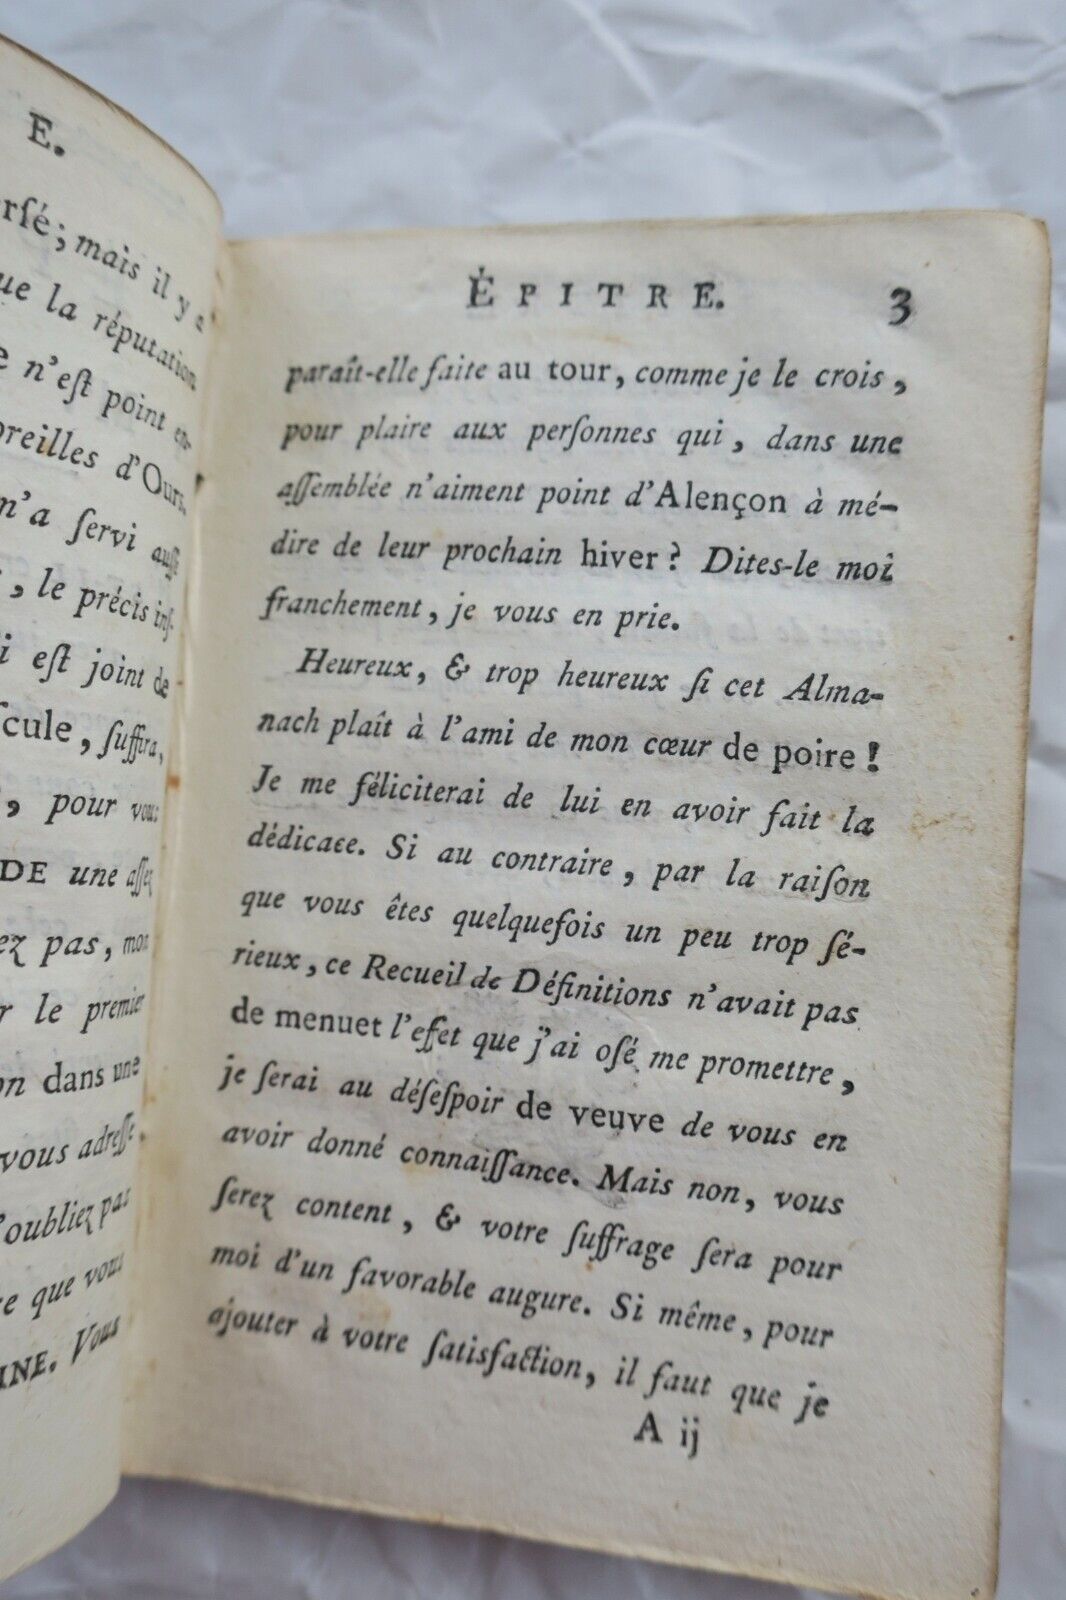 E.
rſé; mais il y a
ue la réputation
e n'eſt point en-
oreilles d'Ours.
m'a ſervi auſſi
, le précis inſ-
i eſt joint de
ſcule, ſuffira,
, pour vous
DE une aſſez
ez pas, mon
r le premier
on dans une
vous adreſſe.
'oubliez pas
ce que vous
INE. Vous
ÉPITRE. 3
paraît-elle faite au tour, comme je le crois,
pour plaire aux perſonnes qui, dans une
aſſemblée n'aiment point d'Alençon à mé-
dire de leur prochain hiver? Dites-le moi
franchement, je vous en prie.
Heureux, & trop heureux ſi cet Alma-
nach plaît à l'ami de mon cœur de poire!
Je me féliciterai de lui en avoir fait la
dédicace. Si au contraire, par la raiſon
que vous êtes quelquefois un peu trop ſé-
rieux, ce Recueil de Définitions n'avait pas
de menuet l'effet que j'ai oſé me promettre,
je ſerai au déſeſpoir de veuve de vous en
avoir donné connaiſſance. Mais non, vous
ſerez content, & votre ſuffrage ſera pour
moi d'un favorable augure. Si même, pour
ajouter à votre ſatisfaction, il faut que je
A ij